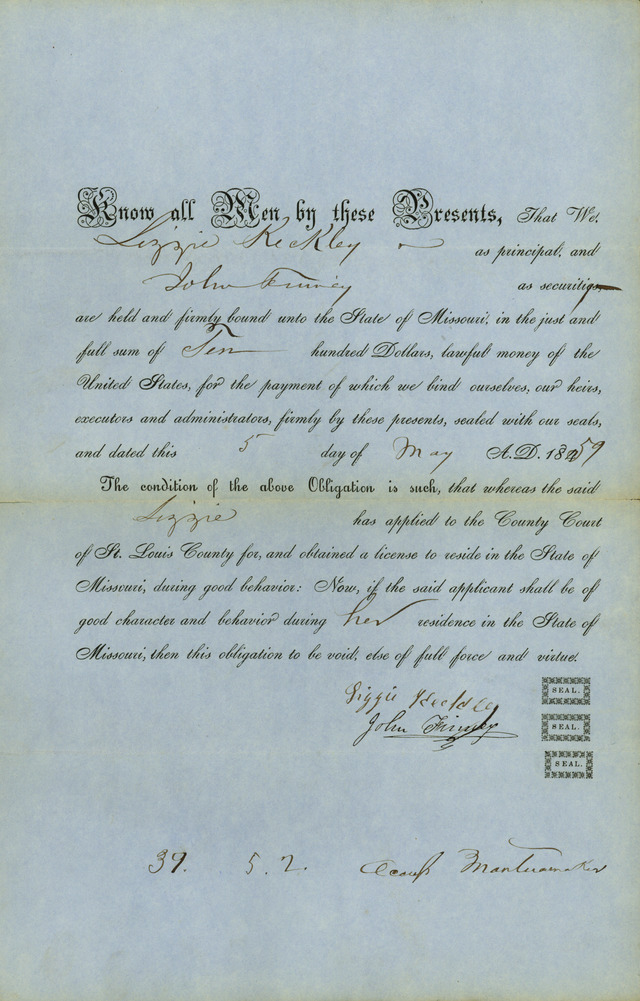 Know all Men by these Presents, That We,
Lizzie Keckley as principal, and
John Finney as securities,
are held and firmly bound unto the State of Missouri, in the just and
full sum of Ten hundred Dollars, lawful money of the
United States, for the payment of which we bind ourselves, our heirs,
executors and administrators, firmly by these presents, sealed with our seals,
and dated this 5 day of May A.D. 1859
The condition of the above Obligation is such, that whereas the said
Lizzie has applied to the County Court
of St. Louis County for, and obtained a license to reside in the State of
Missouri, during good behavior: Now, if the said applicant shall be of
good character and behavior during her residence in the State of
Missouri, then this obligation to be void, else of full force and virtue.
Lizzie SEAL.
John Finney SEAL.
SEAL.
39. 5.2. Mantuamaker